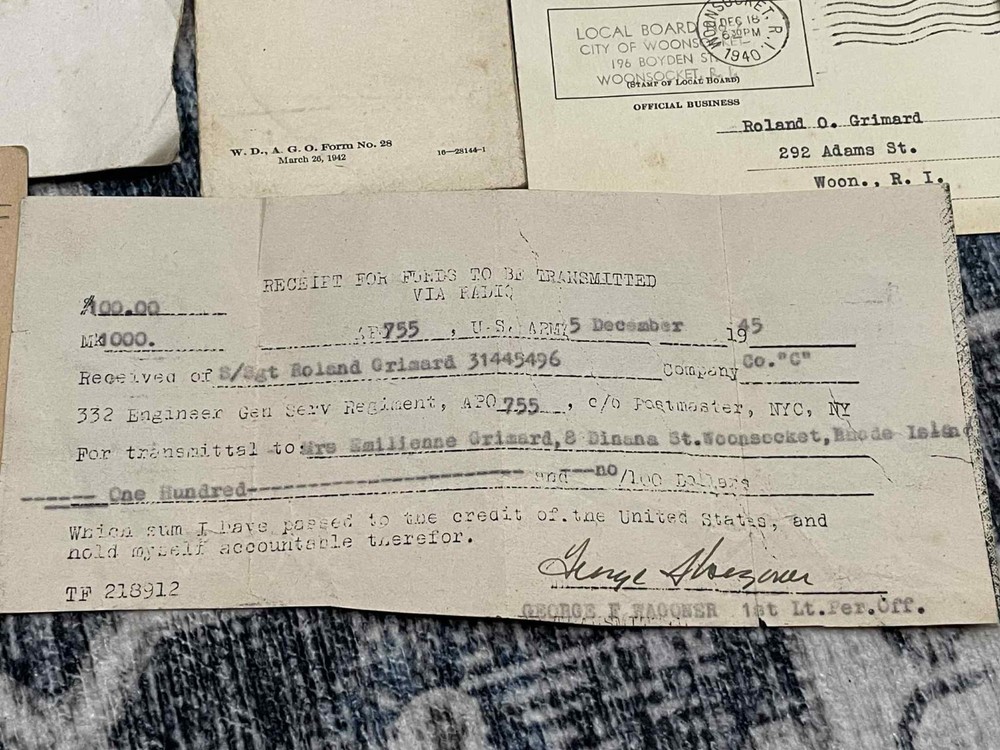 LOCAL BOARD
CITY OF WOONSOCKET
196 BOYDEN ST.
WOONSOCKET, R. I.
(STAMP OF LOCAL BOARD)
WOONSOCKET, R. I.
DEC 18
PM
1940
OFFICIAL BUSINESS
Roland O. Grimard
292 Adams St.
Woon., R. I.
W. D., A. G. O. Form No. 28
March 26, 1942
16—28144-1
RECEIPT FOR FUNDS TO BE TRANSMITTED
VIA RADIO
$100.00
Mk1000.
APO 755 , U.S. ARMY 5 December 1945
Received of S/Sgt Roland Grimard 31445496 Company Co."C"
332 Engineer Gen Serv Regiment, APO 755 , c/o Postmaster, NYC, NY
For transmittal to: Mrs Emilienne Grimard, 8 Dinana St.Woonsocket, Rhode Island
------ One Hundred------------------------ and --no/100 Dollars
Which sum I have passed to the credit of the United States, and
hold myself accountable therefor.
TF 218912
GEORGE F WAGONER 1st Lt.Per.Off.